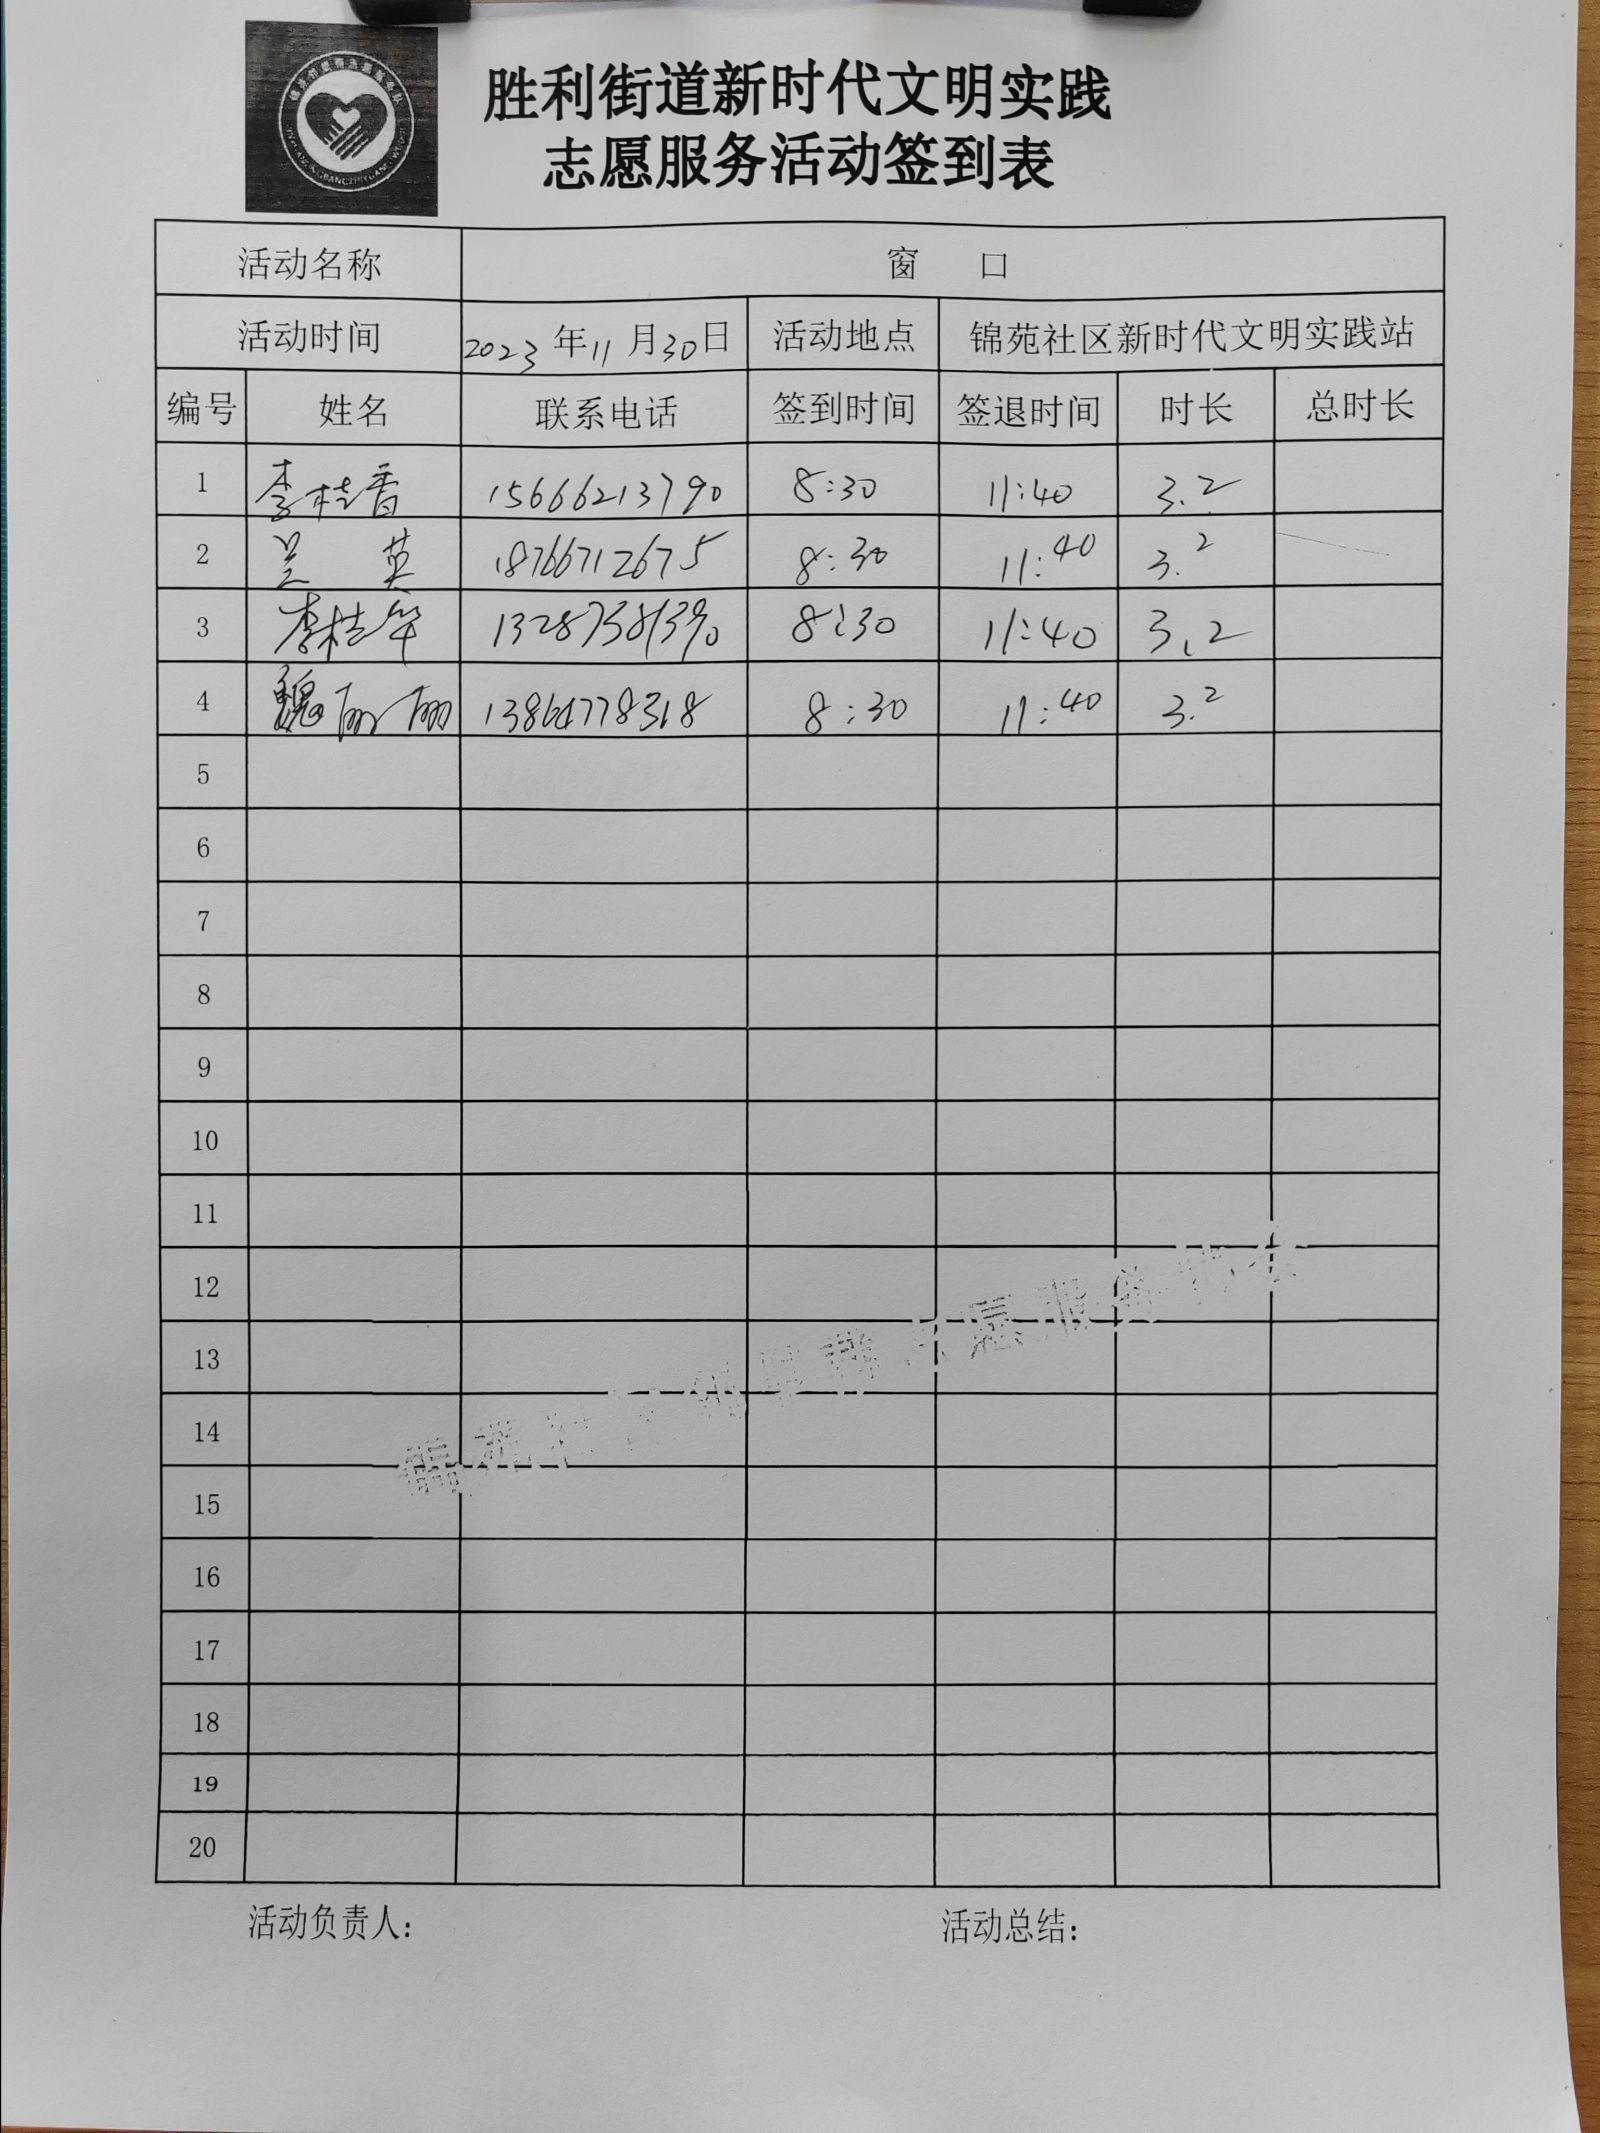 胜利街道新时代文明实践
志愿服务活动签到表
活动名称 窗 口
活动时间 2023 年 11 月 30 日 活动地点 锦苑社区新时代文明实践站
编号 姓名 联系电话 签到时间 签退时间 时长 总时长
1 李桂香 15666213790 8:30 11:40 3.2
2 兰 英 18766712675 8:30 11:40 3.2
3 李桂华 8:30 11:40 3.2
4 魏丽丽 13864778318 8:30 11:40 3.2
5
6
7
8
9
10
11
12
13
14
15
16
17
18
19
20
活动负责人: 活动总结: